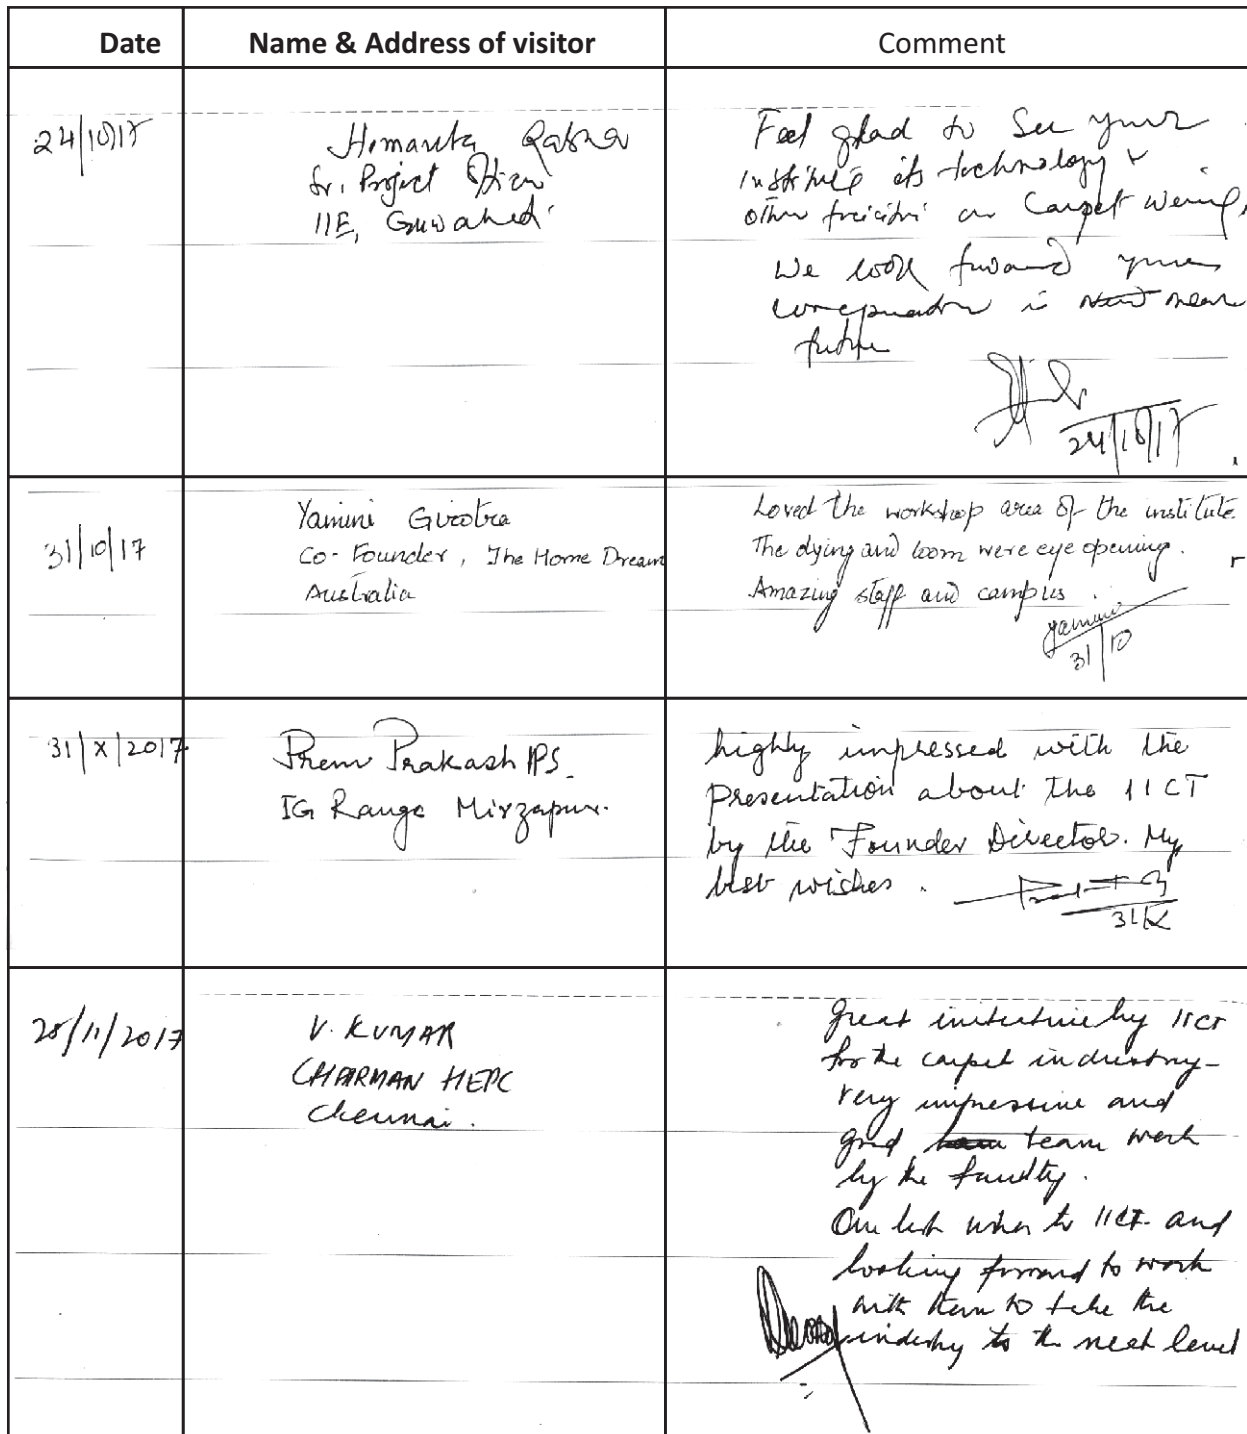 Date
Name & Address of visitor
Comment
24/10/17
Hemanta
Sr. Project
IIE, Guwahati
Feel glad to See your
institute its technology &
other on Carpet
We look forward your
in near
future
24/10/17
31/10/17
Yamini Girotra
Co-Founder, The Home Dream
Australia
Loved the workshop area of the institute.
The dying and loom were eye opening.
Amazing staff and campus.
Yamini
31/10
31/X/2017
Prem Prakash IPS.
IG Range Mirzapur.
highly impressed with the
Presentation about the IICT
by the Founder Director. My
best wishes.
31/X
28/11/2017
V. KUMAR
CHAIRMAN HEPC
Chennai.
Great initiative by IICT
for the carpet industry-
very impressive and
good team work
by the faculty.
Our best wishes to IICT and
looking forward to work
with them to take the
industry to the next level